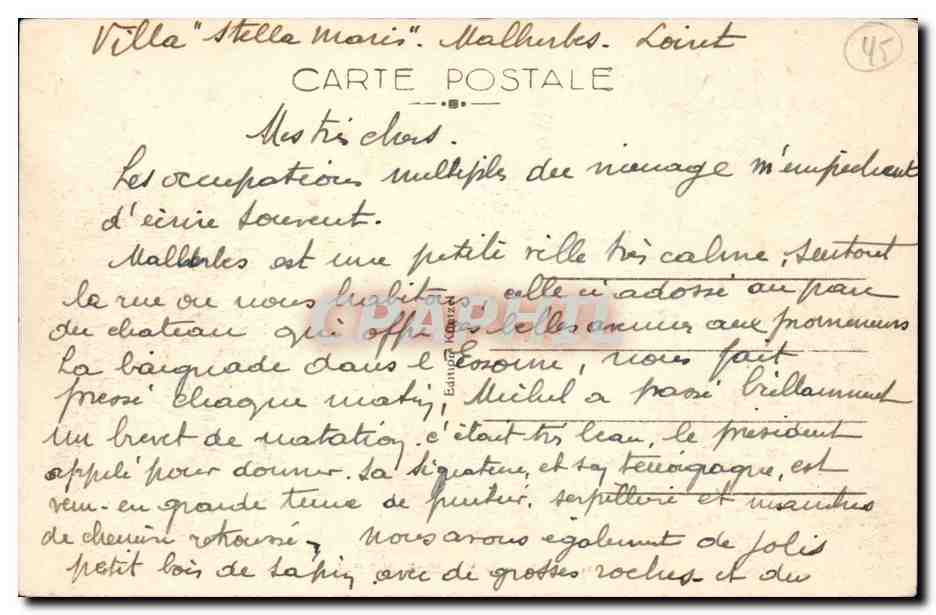 Villa "Stella Maris". Malherbes. Loiret
45
CARTE POSTALE
Mes très chers.
Les occupations multiples du ménage m'empêchent
d'écrire souvent.
Malherbes est une petite ville très calme, surtout
la rue où nous habitons, elle adossé au parc
du château qui offre belles avenues aux promeneurs
La baignade dans l'Essonne, nous fait
passé chaque matin, Michel a passé brillamment
un brevet de natation, c'était très beau, le président
appelé pour donner sa signature, et son témoignage, est
venu en grande tenue de serpillère et manches
de chemise retroussé, nous avons également de jolis
petit bois de sapin, avec de grosses roches et du
Edition
CPAPHIL